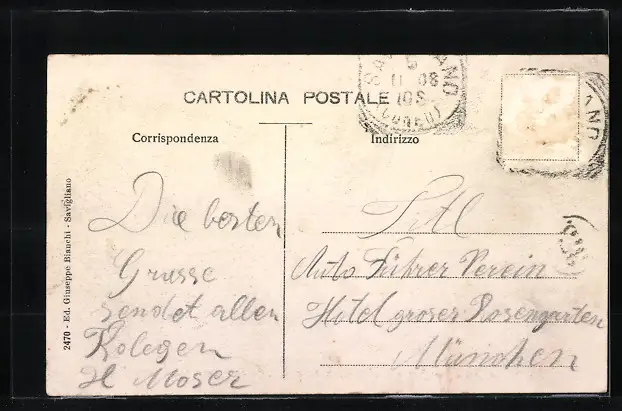 CARTOLINA POSTALE
Corrispondenza
Indirizzo
Die besten
Grusse
sendet allen
Kolegen
H Moser
Titl
Auto Führer Verein
Hotel groser Rosengarten
München
2470 - Ed. Giuseppe Bianchi - Savigliano
11 08
(CUNEO)